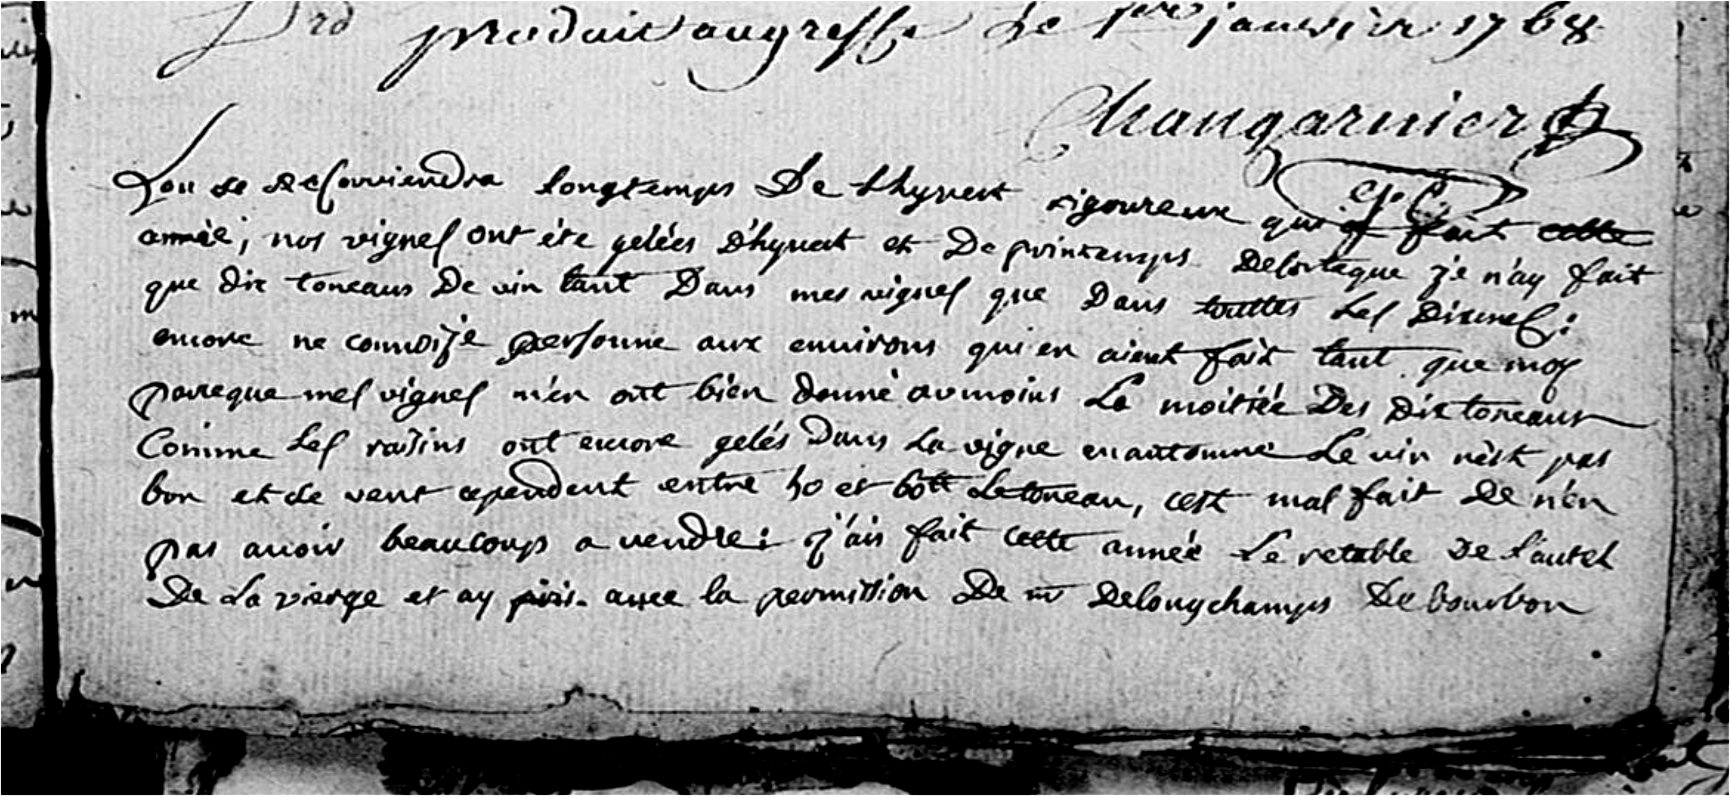 produit au greffe le 1er janvier 1768
Changarnier
Lon se resouviendra longtemps De lhyvert rigoureux qui a fait cette
année; nos vignes ont éte gelées d'hyvert et De printemps Delorteque je n'ay fait
que dix toneaux De vin tant Dans mes vignes que Dans touttes les dixmes;
encore ne connoisje personne aux environs qui en aient fait tant que moy
parceque mes vignes m'en ont bien donné aumoins La moitiée Des dix toneaux
Comme Les raisins ont encore gelés Dans La vigne en automne Le vin n'est pas
bon et se vent cependent entre 50 et 60tt Le toneau, cest mal fait De n'en
pas avoir beaucoup a vendre: j'ais fait cette année Le retable De L'autel
De La vierge et ay pris avec la permission De mr Delongchamps De bourbon